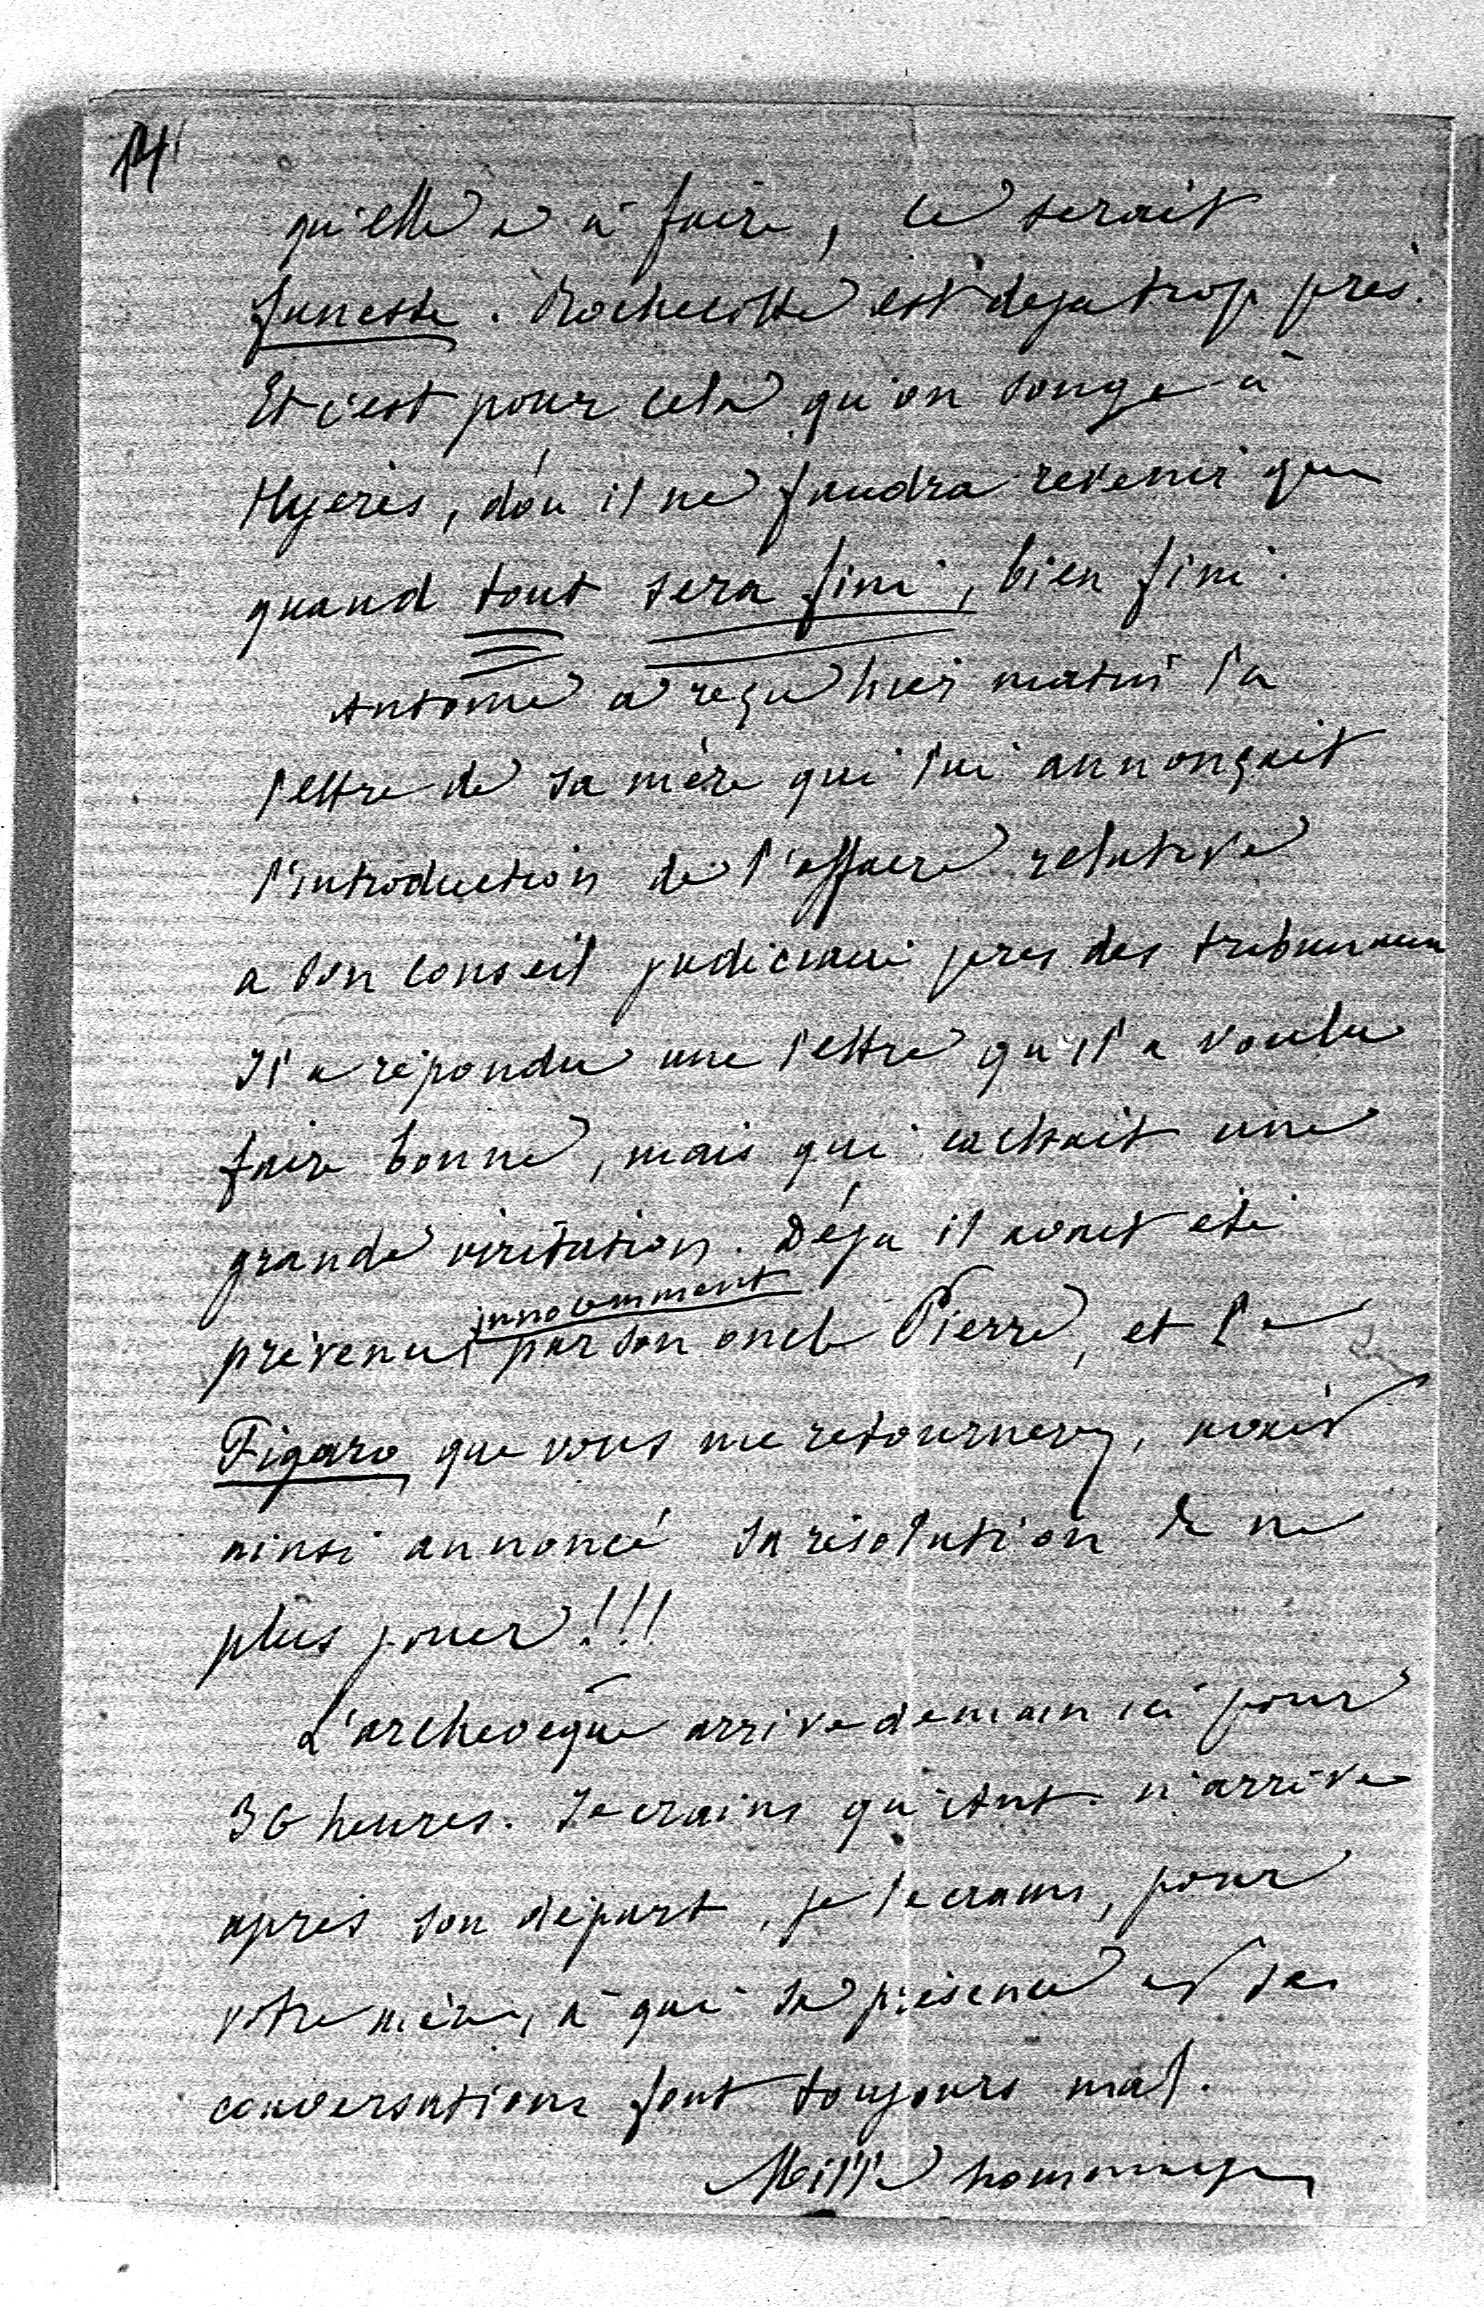 14
qu'elle a à faire, ce serait
funeste. Rochecotte est deja trop près.
Et c'est pour cela qu'on songe à
Hyeres, d'où il ne faudra revenir que
quand tout sera fini, bien fini.
Antoine a reçu hier matin la
lettre de sa mère qui lui annonçait
l'introduction de l'affaire relative
a son conseil judiciaire pres des tribunaux
Il a répondu une lettre qu'il a voulu
faire bonne, mais qui cachait une
grande irritation. Déja il avait été
innocemment
prévenu par son oncle Pierre, et le
Figaro que vous me retournerez, avait
ainsi annoncé sa résolution de ne
plus jouer!!!
L'archevêque arrive demain ici pour
36 heures. Je crains qu'Ant. n'arrive
après son départ, je le crains, pour
votre mère, à qui sa présence et ses
conversations font toujours mal.
Mille hommages